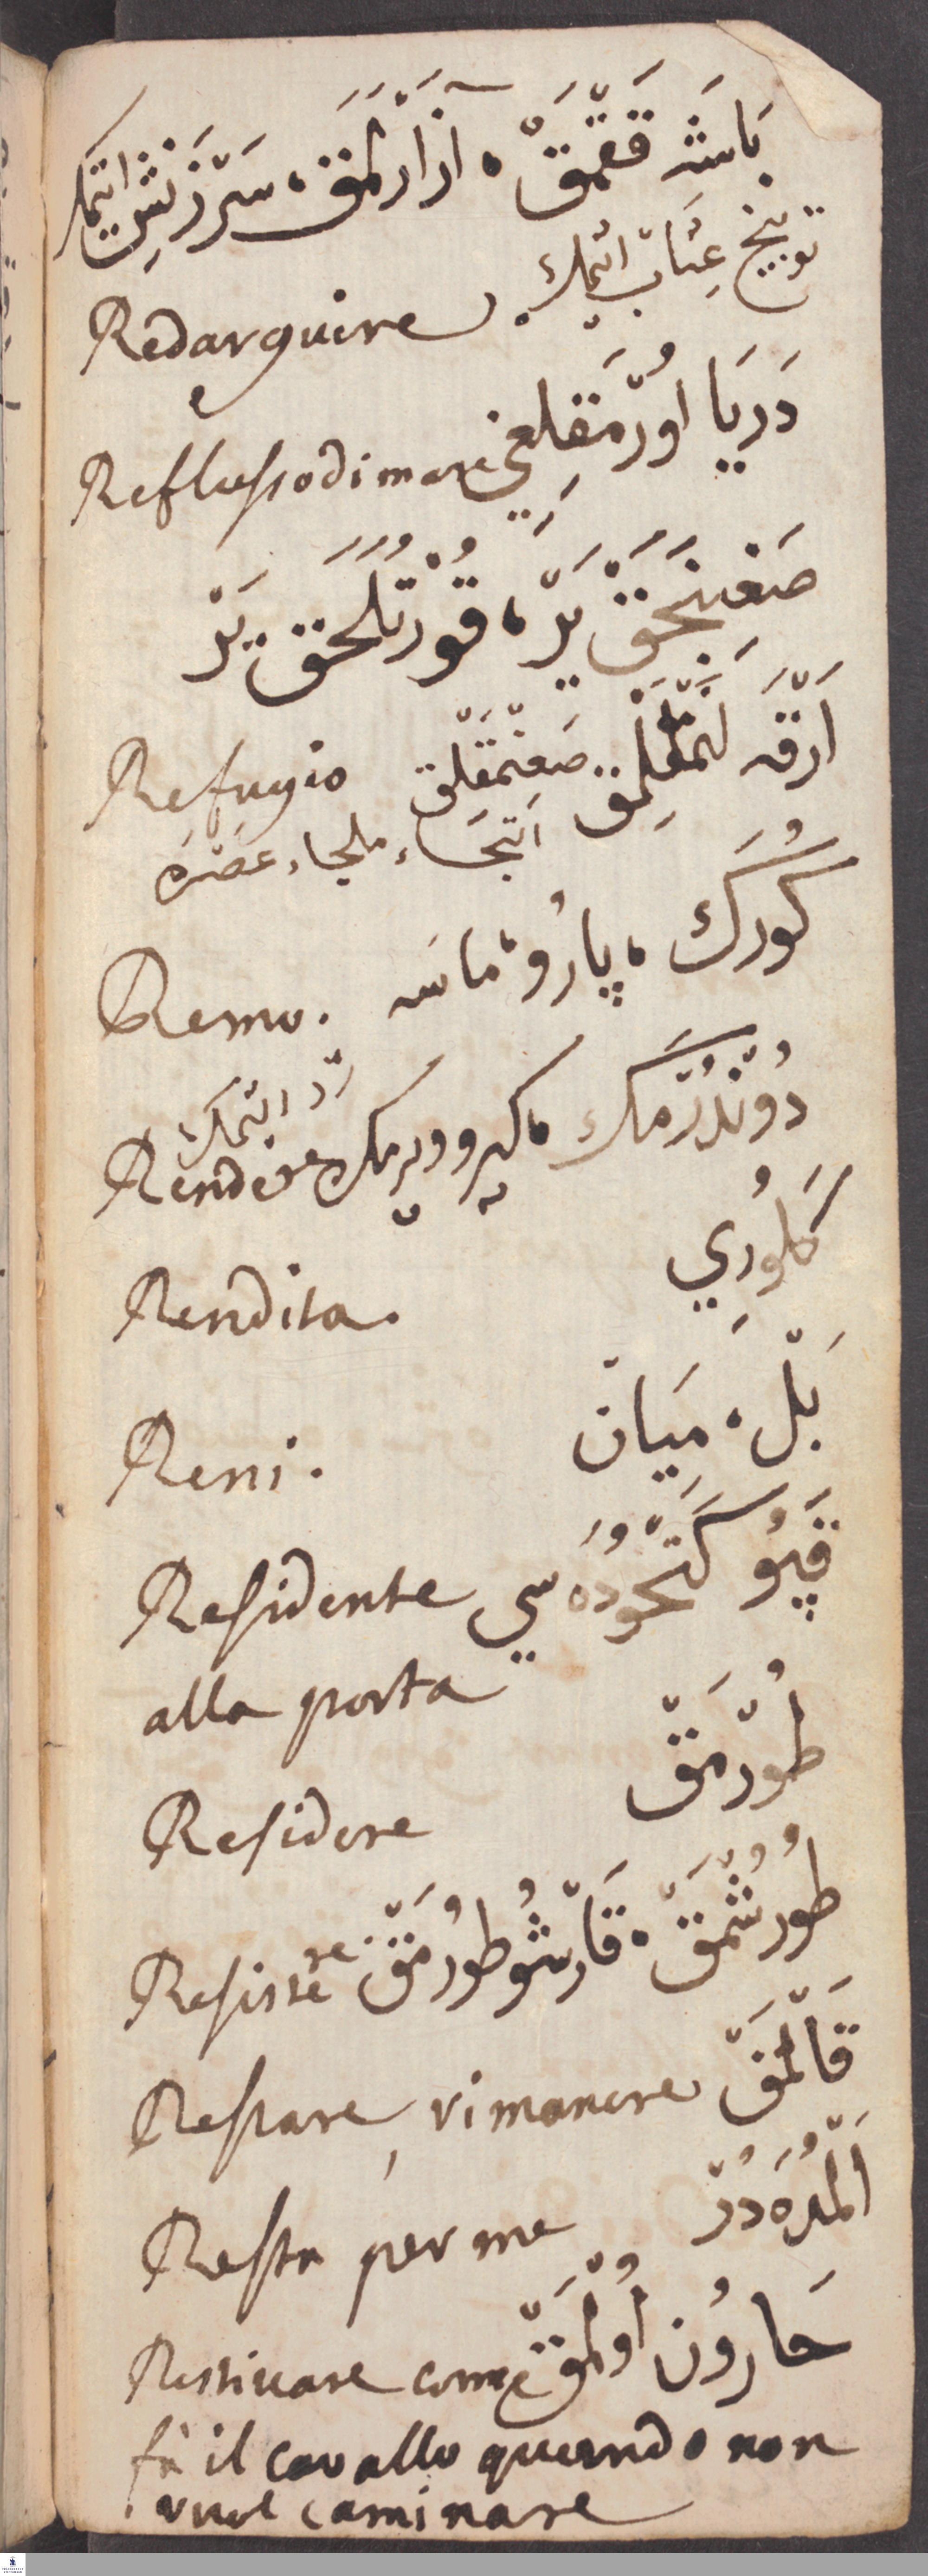 بَاشَه قَقْمَقْ ، آزَارْلَمَق ، سَرْزَنِشْ ايتمك
توبيخ عِتَاب اتمك
Redarguire
دَرْيَا اوُرْمَقلِغِي
Reflusso di mare
صَغِنَجَقْ يَرْ ، قُورْتُلَجَق يَرْ
اَرْقَه لَنْمَقْلِق صَغِنْمَقْلِق
Refugio
التجاء ملجاء
كُورَك ، پارُو ، ماسَه
Remo.
دُونْدُرْمَك ، كيرو ويرمك
ردّ اتمك
Rendere
كَلُورِي
Rendita.
بَلْ ، مِيَانْ
Reni.
قَپُو كَتْخُودَه سِي
Residente
alla porta
طُورْمَقْ
Residere
طُورُشْمَقْ ، قَارْشُو طُورْمَقْ
Resistere
قَالْمَقْ
Restare, rimanere
اَلْمَدَه دُرْ
Resta per me
حَارُون اُولْمَقْ
Restiuare come
fà il cavallo quando non
vuol caminare